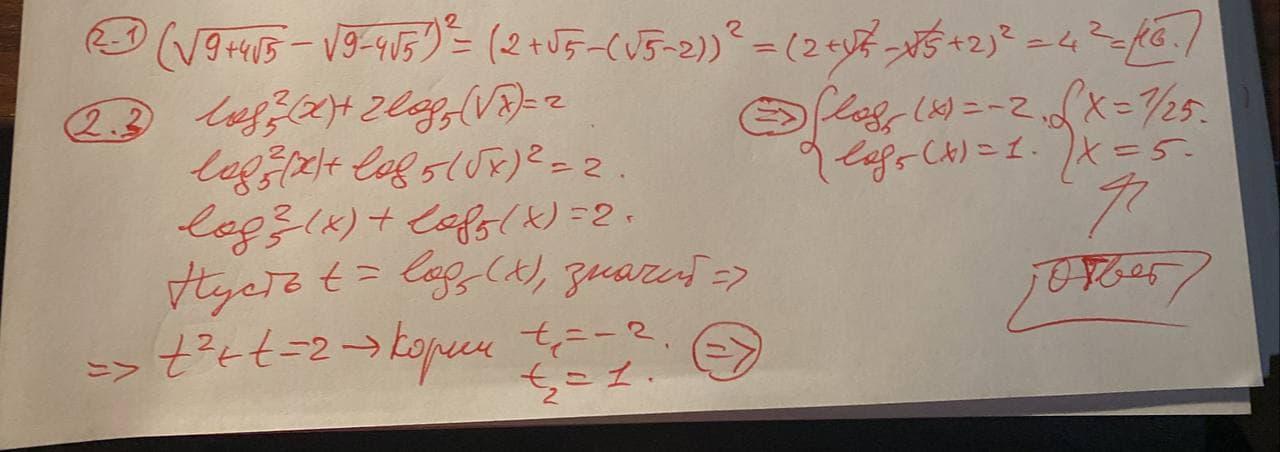 2.1 (√(9+4√5) − √(9−4√5))² = (2+√5−(√5−2))² = (2+√5−√5+2)² = 4² = 16.
2.3 log₅²(x)+2log₅(√x)=2
log₅²(x)+log₅(√x)²=2.
log₅²(x)+log₅(x)=2.
Пусть t = log₅(x), значит =>
=> t²+t=2 → Корни t₁=−2.
t₂=1. =>
=> { log₅(x)=−2. { x=1/25.
log₅(x)=1. x=5.
Ответ